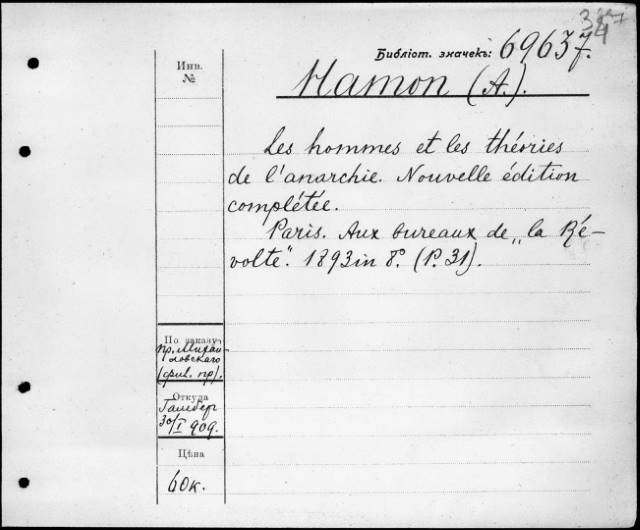 Библіот. значекъ: 69637.
Инв.
№
Hamon (A.).
Les hommes et les théories
de l'anarchie. Nouvelle édition
complétée.
Paris. Aux bureaux de „la Ré-
volte". 1893 in 8°. (P. 31).
По заказу
пр. Михай-
ловскаго
(фил. пр).
Откуда
30/I 909.
Цѣна
60к.